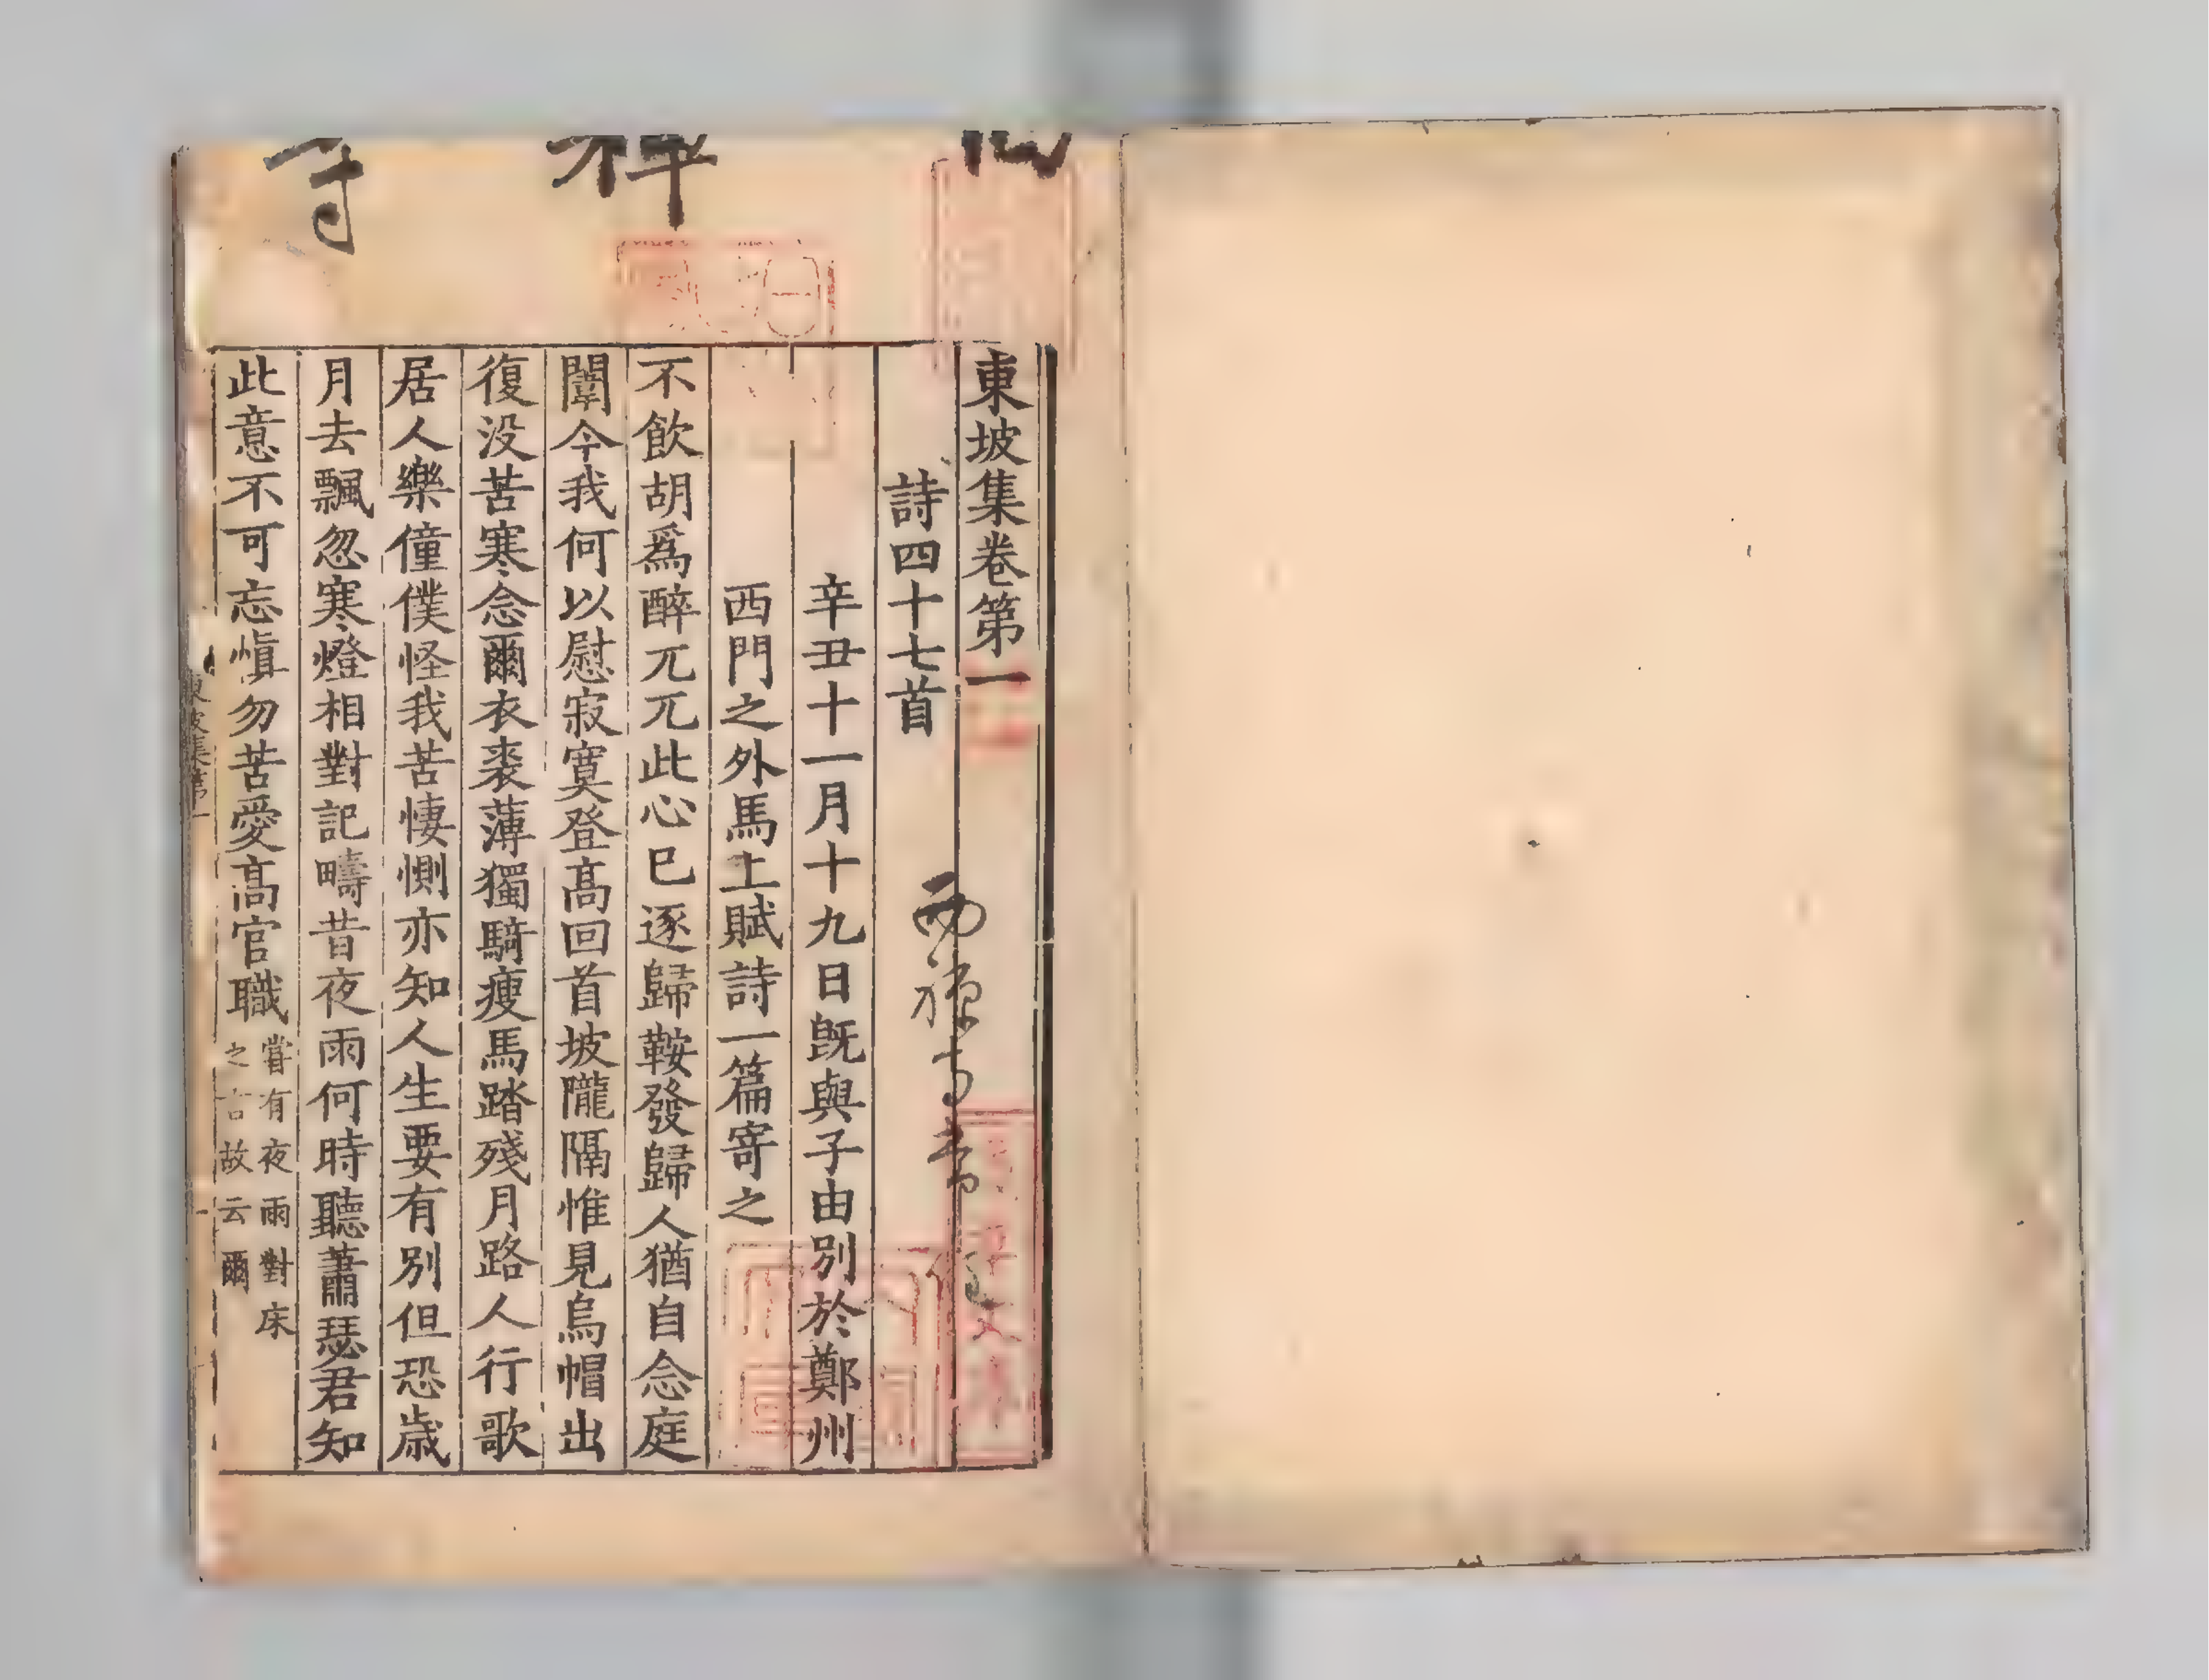 東坡集卷第一
詩四十七首
西禪寺常住
辛丑十一月十九日旣與子由別於鄭州
西門之外馬上賦詩一篇寄之
不飲胡爲醉兀兀此心已逐歸鞍發歸人猶自念庭
闈今我何以慰寂寞登高回首坡隴隔惟見烏帽出
復没苦寒念爾衣裘薄獨騎瘦馬踏殘月路人行歌
居人樂僮僕怪我苦悽惻亦知人生要有別但恐歲
月去飄忽寒燈相對記疇昔夜雨何時聽蕭瑟君知
此意不可忘愼勿苦愛高官職
嘗有夜雨對床
之言故云爾
東坡集第一